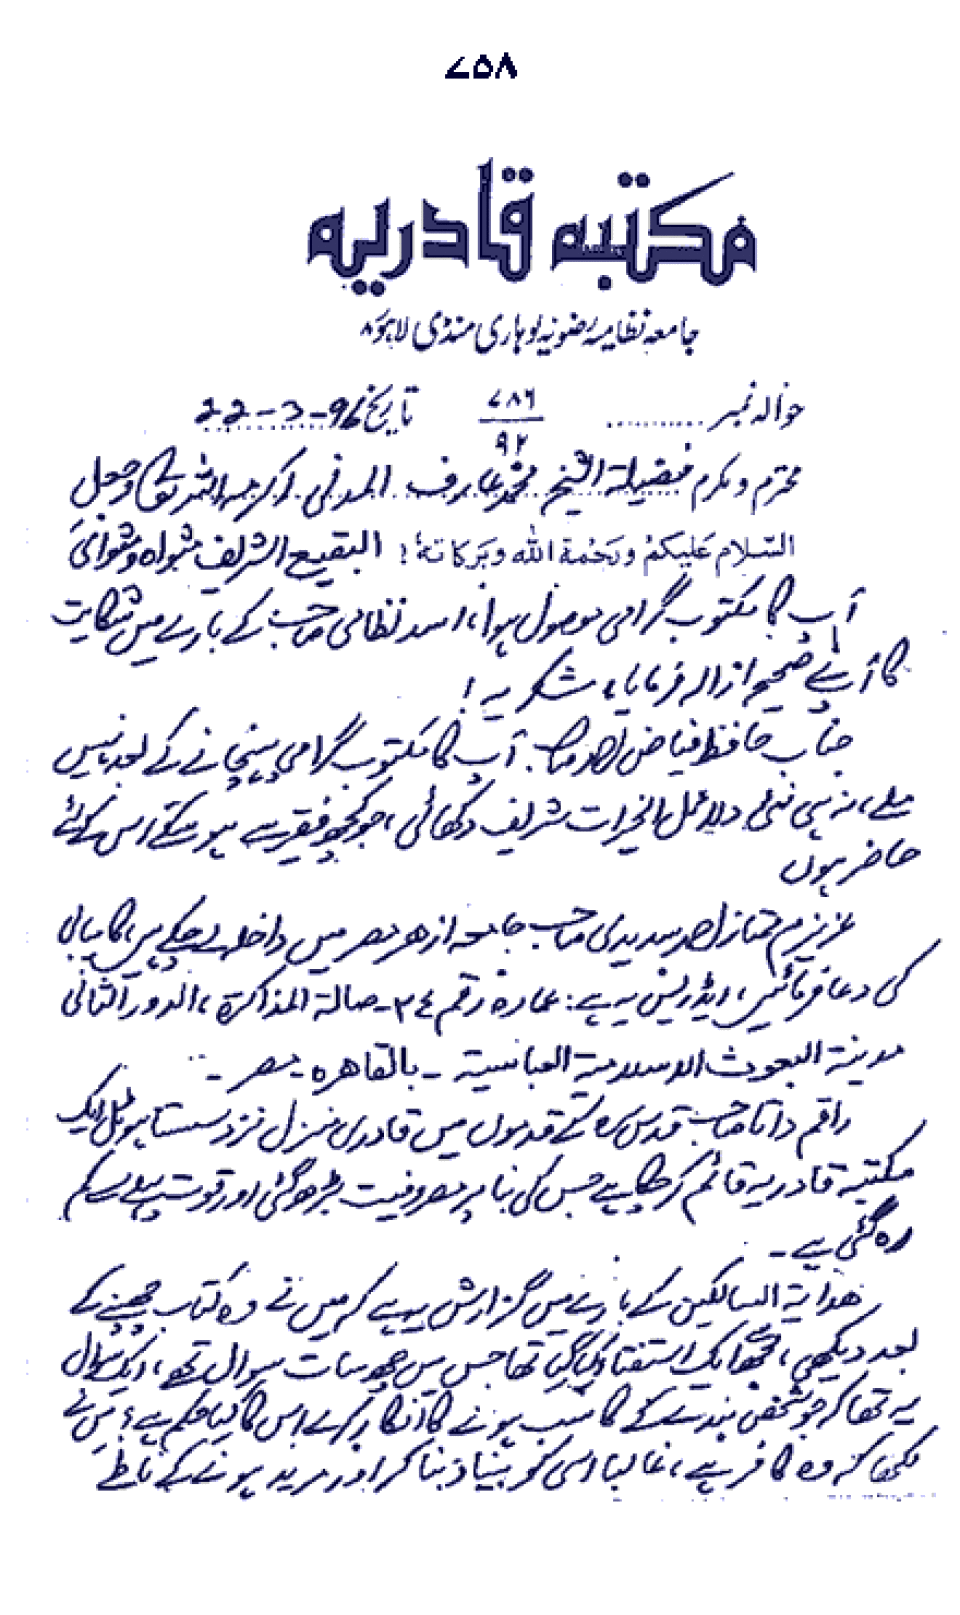 ۷۵۸
مکتبہ قادریہ
جامعہ نظامیہ رضویہ لوہاری منڈی لاہور ۸
حوالہ نمبر ........ ۷۸۶ / ۹۲ تاریخ 22-3-96
محترم و مکرم فضیلۃ الشیخ محمد عارف المدنی اکرمہ اللہ تعالیٰ وجعل
السلام علیکم ورحمۃ اللہ وبرکاتہ! البقیع الشریف مثواہ ومثوای
آپ کا مکتوب گرامی موصول ہوا، اسد نظامی صاحب کے بارے میں شکایت
کا آپ نے صحیح ازالہ فرمایا، شکریہ!
جناب حافظ فیاض احمد صاحب آپ کا مکتوب گرامی پہنچانے کے بعد نہیں
ملے، نہ ہی فلمی دلائل الخیرات شریف دکھائی، جو کچھ فقیر سے ہو سکے اس کے لئے
حاضر ہوں
عزیزم ممتاز احمد سدیدی صاحب جامعہ ازھر مصر میں داخلہ لے چکے ہیں، کامیابی
کی دعا فرمائیں، ایڈریس یہ ہے: عمارہ رقم ۳٤۔ صالۃ المذاکرۃ، الدور الثانی
مدینۃ البعوث الاسلامیۃ العباسیۃ ۔ بالقاھرہ ۔ مصر ۔
راقم داتا صاحب قدس سرہ کے قدموں میں قادری منزل نزد سستا ہوٹل ایک
مکتبہ قادریہ قائم کر چکا ہے جس کی بنا پر مصروفیت بڑھ گئی اور قوت پہلے سے کم
رہ گئی ہے ۔
ھدایۃ السالکین کے بارے میں گزارش یہ ہے کہ میں نے وہ کتاب چھپنے کے
بعد دیکھی، مجھے ایک استفتاء کیا گیا تھا جس میں چھ سات سوال تھے، ایک سوال
یہ تھا کہ جو شخص بندے کے کاسب ہونے کا انکار کرے اس کا کیا حکم ہے؟ میں نے
لکھا کہ وہ کافر ہے، غالبا اسی کو بنیاد بنا کر اور مرید ہونے کے ناطے